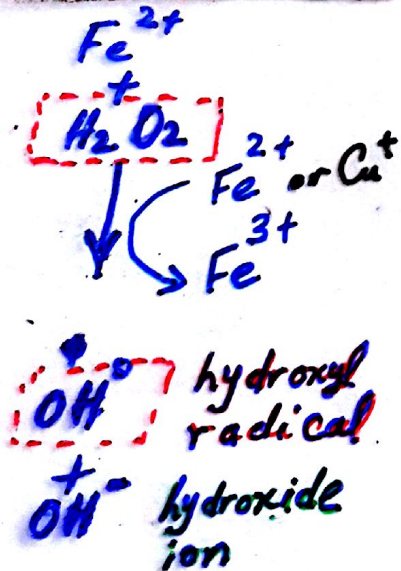 Fe²⁺
+
H₂O₂
Fe²⁺ or Cu⁺
Fe³⁺
OH• hydroxyl
radical
+
OH⁻ hydroxide
ion